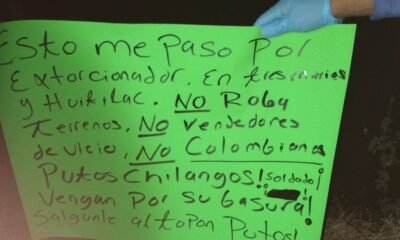 Esto me Paso Por
Extorcionador. En tres marias
y Huitzilac. NO Roba
Terrenos, NO Vendedores
de vicio, NO Colombianos
Putos Chilangos! Soldado!
Vengan Por su basura!
Salganle al topon Putos!